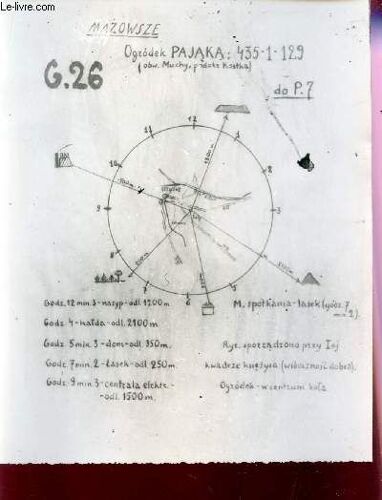 Le-livre.com
MAZOWSZE
Ogródek PAJĄKA: 435-1-129
(obw. Muchy, p
G.26
do P.7
12
11
1
10
2
9
3
8
4
7
5
6
Godz. 12 min. 3 - nasyp - odl. 1200 m.
Godz. 4 - hałda - odl. 2100 m
Godz. 5 min. 3 - dom - odl. 350 m.
Godz. 7 min. 2 - lasek - odl. 250 m.
Godz. 9 min. 3 - centrala elektr. -
- odl. 1500 m.
M. spotkania - lasek (godz. 7
Rys. sporządzono przy I-ej
kwadrze księżyca (widoczność dobra).
Ogródek - w centrum koła